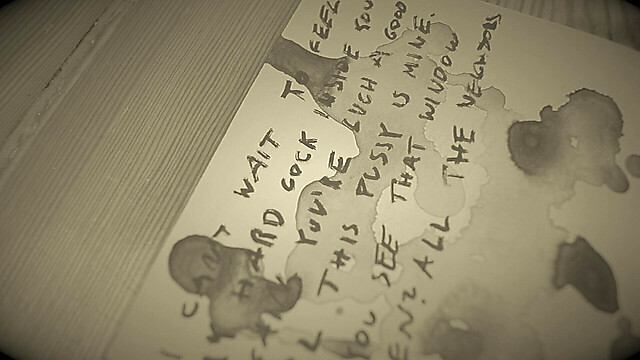 I CAN'T WAIT TO FEEL
HARD COCK INSIDE YOU
YOU'RE SUCH A GOOD
L THIS PUSSY IS MINE.
YOU SEE THAT WINDOW
EN? ALL THE NEIGHBORS